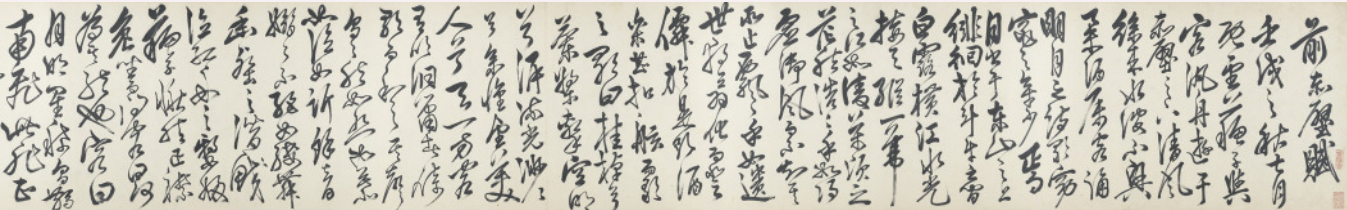 前赤壁賦
壬戌之秋七月
既望蘇子與
客汎舟遊于
赤壁之下清風
徐來水波不興
舉酒屬客誦
明月之詩歌窈
窕之章少焉
月出于東山之上
徘徊於斗牛之間
白露橫江水光
接天縱一葦
之所如凌萬頃之
茫然浩浩乎如馮
虛御風而不知其
所止飄飄乎如遺
世獨立羽化而登
僊於是飲酒
樂甚扣舷而歌
之歌曰桂棹兮
蘭槳擊空明
兮泝流光渺渺
兮余懷望美
人兮天一方客
有吹洞簫者倚
歌而和之其聲
嗚嗚然如怨如慕
如泣如訴餘音
嫋嫋不絕如縷舞
幽壑之潛蛟
泣孤舟之嫠婦
蘇子愀然正襟
危坐而問客曰
何為其然也客曰
月明星稀烏鵲
南飛此非